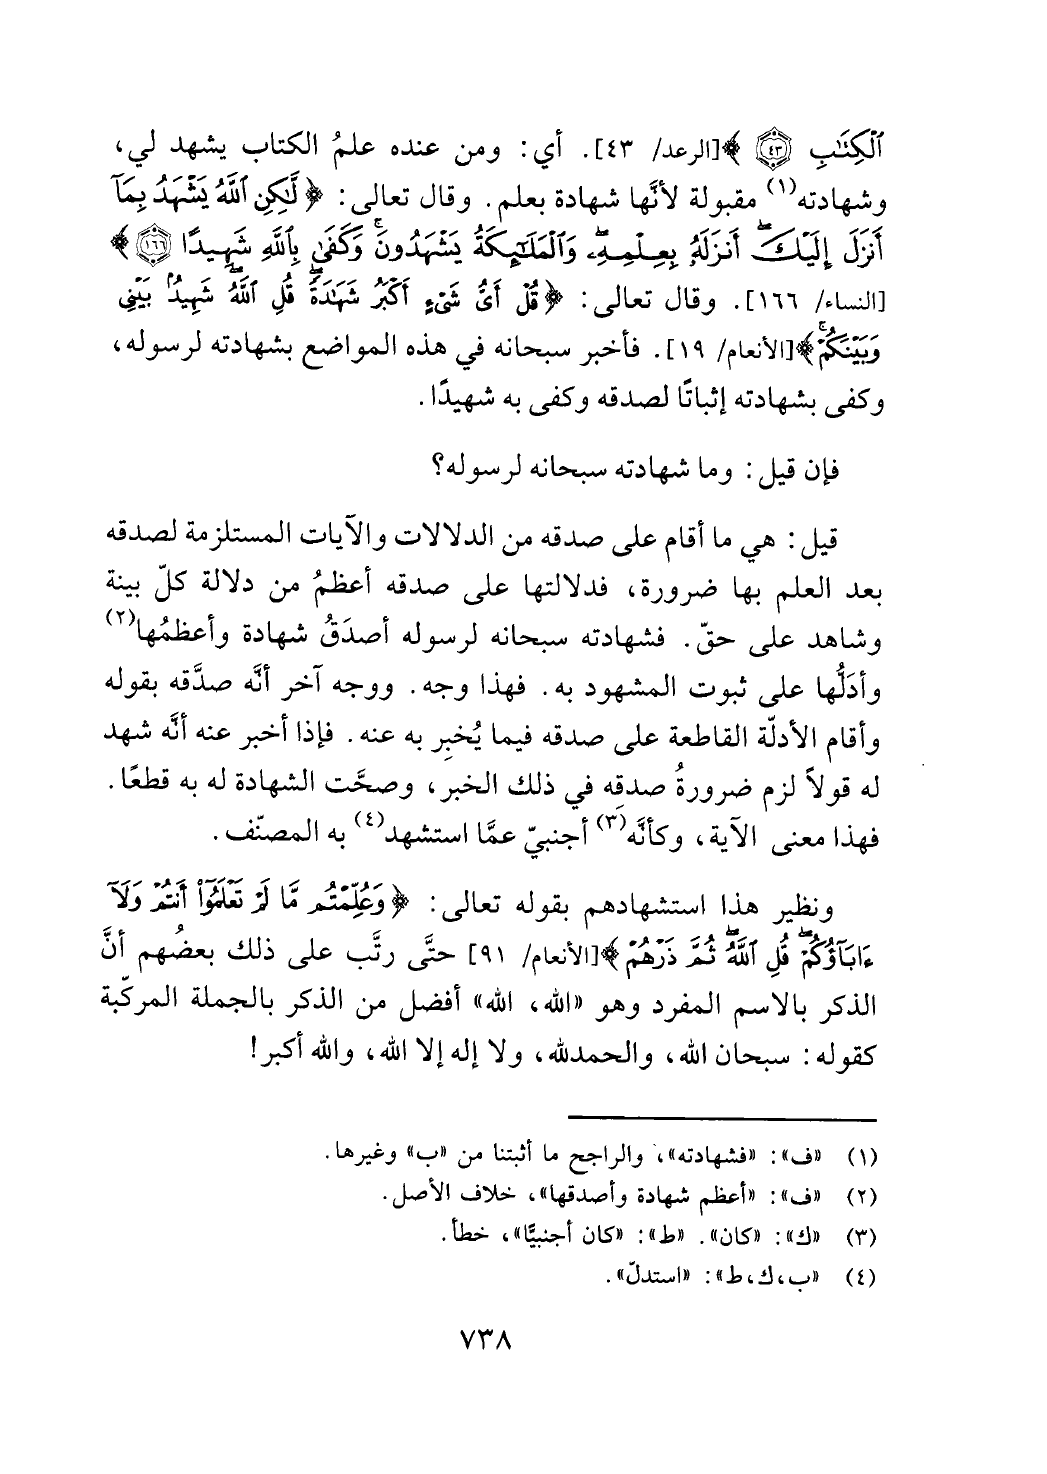 ٱلْكِتَٰبِ ﴿٤٣﴾ ﴾[الرعد/ ٤٣]. أي: ومن عنده علمُ الكتاب يشهد لي،
وشهادته(١) مقبولة لأنَّها شهادة بعلم. وقال تعالى: ﴿ لَّٰكِنِ ٱللَّهُ يَشْهَدُ بِمَآ
أَنزَلَ إِلَيْكَ ۖ أَنزَلَهُۥ بِعِلْمِهِۦ ۖ وَٱلْمَلَٰٓئِكَةُ يَشْهَدُونَ ۚ وَكَفَىٰ بِٱللَّهِ شَهِيدًا ﴿١٦٦﴾ ﴾
[النساء/ ١٦٦]. وقال تعالى: ﴿ قُلْ أَىُّ شَىْءٍ أَكْبَرُ شَهَٰدَةً ۖ قُلِ ٱللَّهُ ۖ شَهِيدٌۢ بَيْنِى
وَبَيْنَكُمْ ۚ ﴾[الأنعام/ ١٩]. فأخبر سبحانه في هذه المواضع بشهادته لرسوله،
وكفى بشهادته إثباتًا لصدقه وكفى به شهيدًا.
فإن قيل: وما شهادته سبحانه لرسوله؟
قيل: هي ما أقام على صدقه من الدلالات والآيات المستلزمة لصدقه
بعد العلم بها ضرورة، فدلالتها على صدقه أعظمُ من دلالة كلّ بينة
وشاهد على حقّ. فشهادته سبحانه لرسوله أصدَقُ شهادة وأعظمُها(٢)
وأدَلُّها على ثبوت المشهود به. فهذا وجه. ووجه آخر أنَّه صدَّقه بقوله
وأقام الأدلّة القاطعة على صدقه فيما يُخبِر به عنه. فإذا أخبر عنه أنَّه شهد
له قولاً لزم ضرورةُ صدقِه في ذلك الخبر، وصحَّت الشهادة له به قطعًا.
فهذا معنى الآية، وكأنَّه(٣) أجنبيّ عمَّا استشهد(٤) به المصنّف.
ونظير هذا استشهادهم بقوله تعالى: ﴿ وَعُلِّمْتُم مَّا لَمْ تَعْلَمُوٓا۟ أَنتُمْ وَلَآ
ءَابَآؤُكُمْ ۖ قُلِ ٱللَّهُ ۖ ثُمَّ ذَرْهُمْ ﴾[الأنعام/ ٩١] حتَّى رتَّب على ذلك بعضُهم أنَّ
الذكر بالاسم المفرد وهو «الله، الله» أفضل من الذكر بالجملة المركّبة
كقوله: سبحان الله، والحمدلله، ولا إله إلا الله، والله أكبر!
(١) «ف»: «فشهادته»، والراجح ما أثبتنا من «ب» وغيرها.
(٢) «ف»: «أعظم شهادة وأصدقها»، خلاف الأصل.
(٣) «ك»: «كان». «ط»: «كان أجنبيًّا»، خطأ.
(٤) «ب،ك،ط»: «استدلّ».
٧٣٨